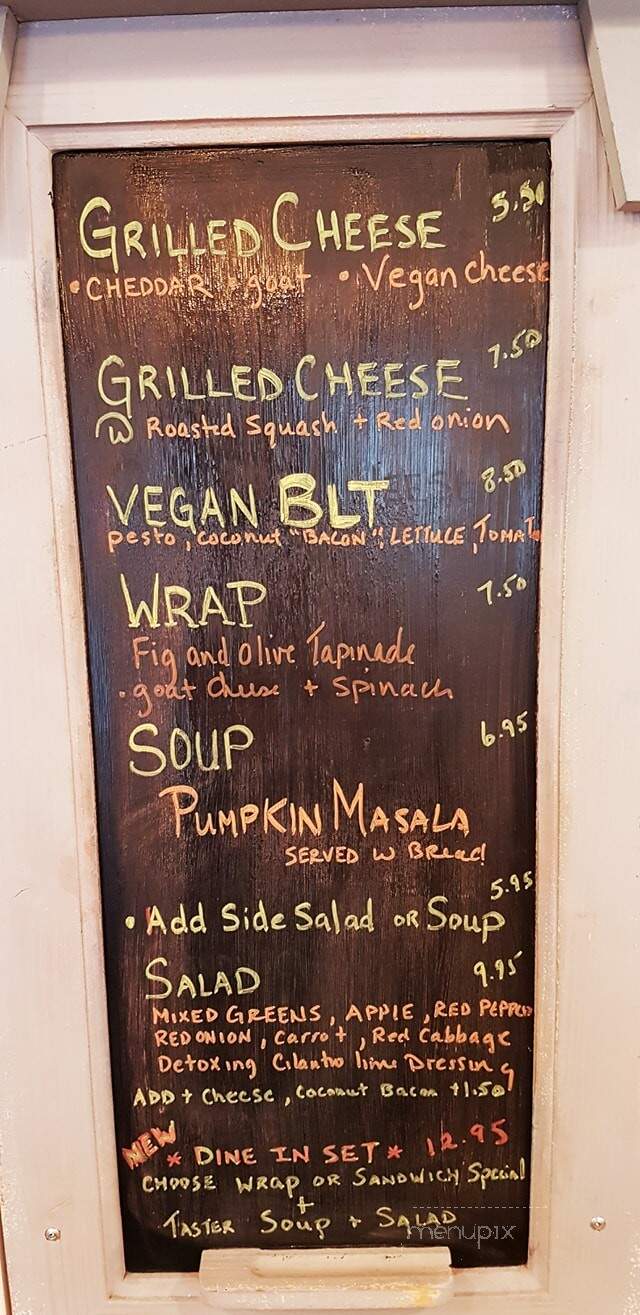 GRILLED CHEESE 5.50
• CHEDDAR + goat • Vegan cheese
GRILLED CHEESE 7.50
W Roasted Squash + Red onion
VEGAN BLT 8.50
pesto, coconut "BACON", LETTUCE, TOMATO
WRAP 7.50
Fig and Olive Tapinade
• goat cheese + Spinach
SOUP 6.95
PUMPKIN MASALA
SERVED W BREAD
• Add Side Salad OR Soup 5.95
SALAD 9.95
MIXED GREENS, APPLE, RED PEPPER
RED ONION, Carrot, Red Cabbage
Detoxing Cilantro lime Dressing
ADD + Cheese, Coconut Bacon +1.50
NEW * DINE IN SET * 12.95
CHOOSE WRAP OR SANDWICH Special
+
TASTER Soup + SALAD
menupix